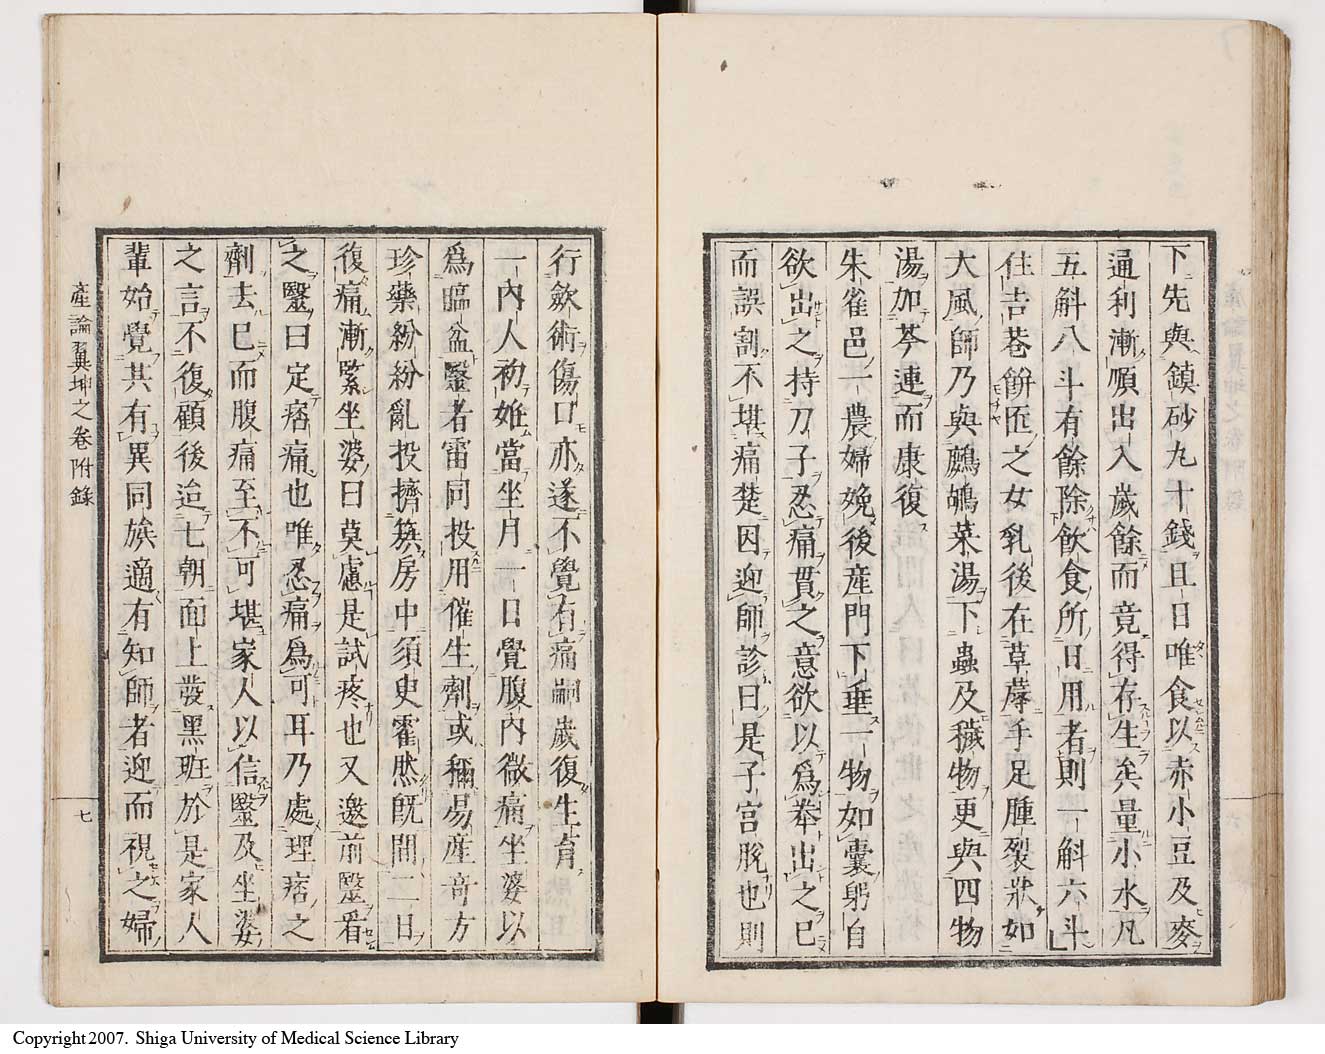 下先與鎮砂九十錢且日唯食以赤小豆及麥
通利漸順出入歲餘而竟得存生矣量小水凡
五斛八斗有餘除飲食所日用者則一斛六斗
住吉巷餅匠之女乳後在草蓐手足腫裂狀如
大風師乃與鷓鴣菜湯下蟲及穢物更與四物
湯加芩連而康復
朱雀邑一農婦娩後産門下垂一物如囊躬自
欲出之持刀子忍痛貫之意欲以爲牽出之已
而誤割不堪痛楚因迎師診曰是子宮脫也則
行斂術傷口亦遂不覺有痛嗣歲復生育
一內人初姙當坐月一日覺腹內微痛坐婆以
爲臨盆毉者雷同投用催生劑或稱易産奇方
珍藥紛紛亂投擠簇房中須臾霍然旣間二日
復痛漸緊坐婆曰莫慮是試疼也又邀前毉看
之毉曰定痞痛也唯忍痛爲可耳乃處理痞之
劑去已而腹痛至不可堪家人以信毉及坐婆
之言不復顧後迨七朝面上發黑斑於是家人
輩始覺其有異同族適有知師者迎而視之婦
產論翼坤之卷附錄
七
Copyright 2007. Shiga University of Medical Science Library